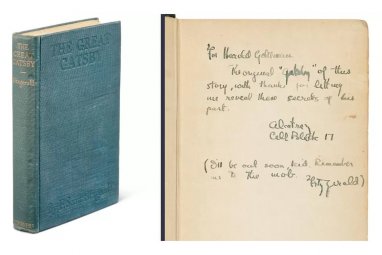 THE
GREAT
GATSBY
Fitzgerald
THE GREAT
GATSBY
For Harold Goldman
The original "Gatsby" of this
story, with thanks for letting
me reveal these secrets of his
past.
Alcatraz
Cell Block 17
(I'll be out soon, kid. Remember
me to the mob. Fitzgerald)